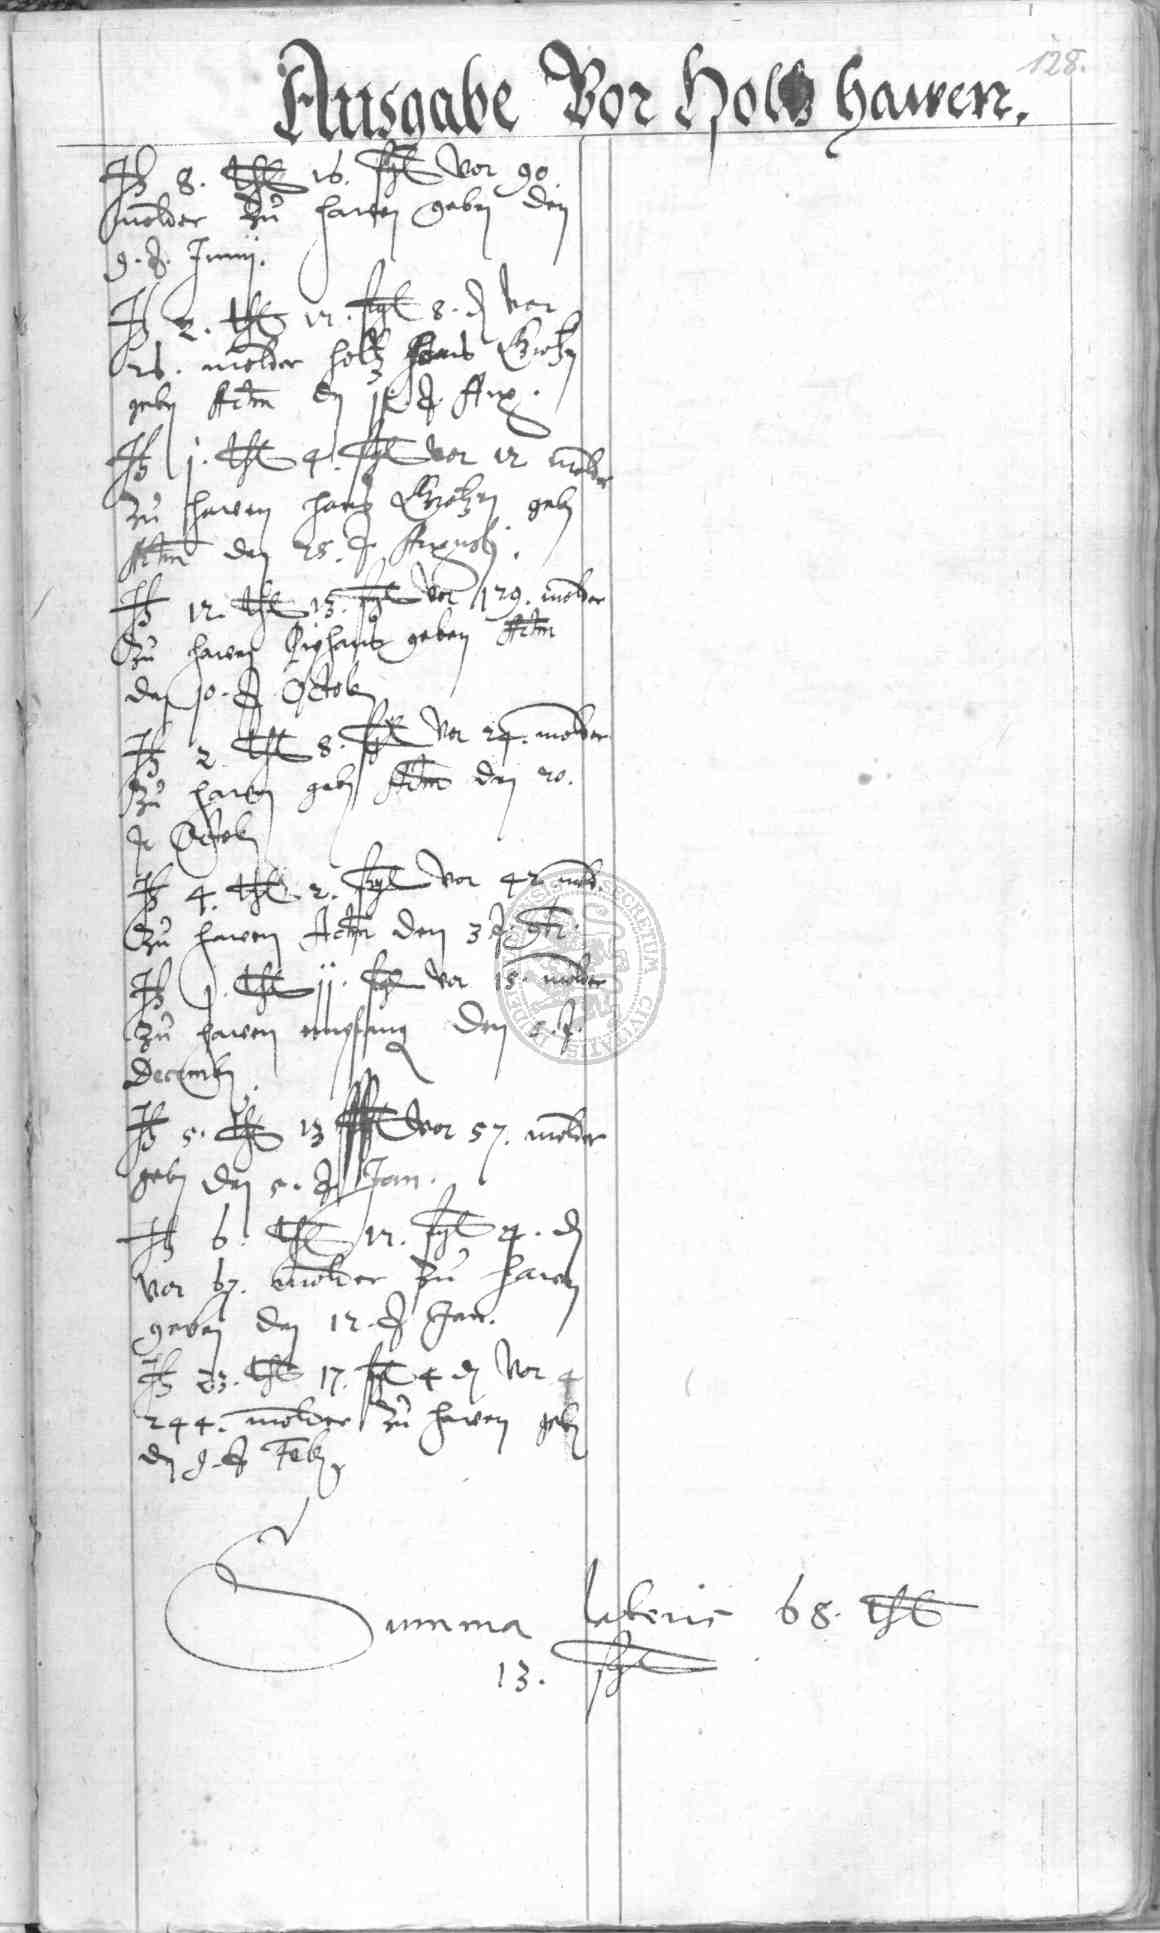 128.
Ausgabe Vor Holtz hawen.
Itz 8. thl 16. sgl vor 90
molder zu hawen geben den
9. d. Junij.
Itz 2. thl 12. sgl 8. d vor
26. molder holtz hans
geben Actum den d. Aug.
Itz j. thl 4. sgl vor 12 molder
zu hawen hans geben
Actum den 25. d Augusti.
Itz 12. thl 13. sgl vor 129. molder
zu hawen geben Actum
den 10. d. Octob
Itz 2. thl 8. sgl vor 24. molder
zu hawen geben Actum den 20.
d Octob
Itz 4. thl 2. sgl vor 42 mold.
zu hawen Actum den 3 d.
Itz j. thl jj. sgl vor 15. molder
zu hawen empfang den 5. d.
Decemb
Itz 5. thl 13 sgl vor 57. molder
geben den 5. d Jan.
Itz 6. thl 12. sgl 4. d
vor 67. molder zu hawen
geben den 12. d Jan.
Itz 23. thl 17. sgl 4 d vor
244. molder zu hawen geben
den 9. d Feb
Summa lateris 68. thl
13. sgl
SECRETUM CIVITATIS